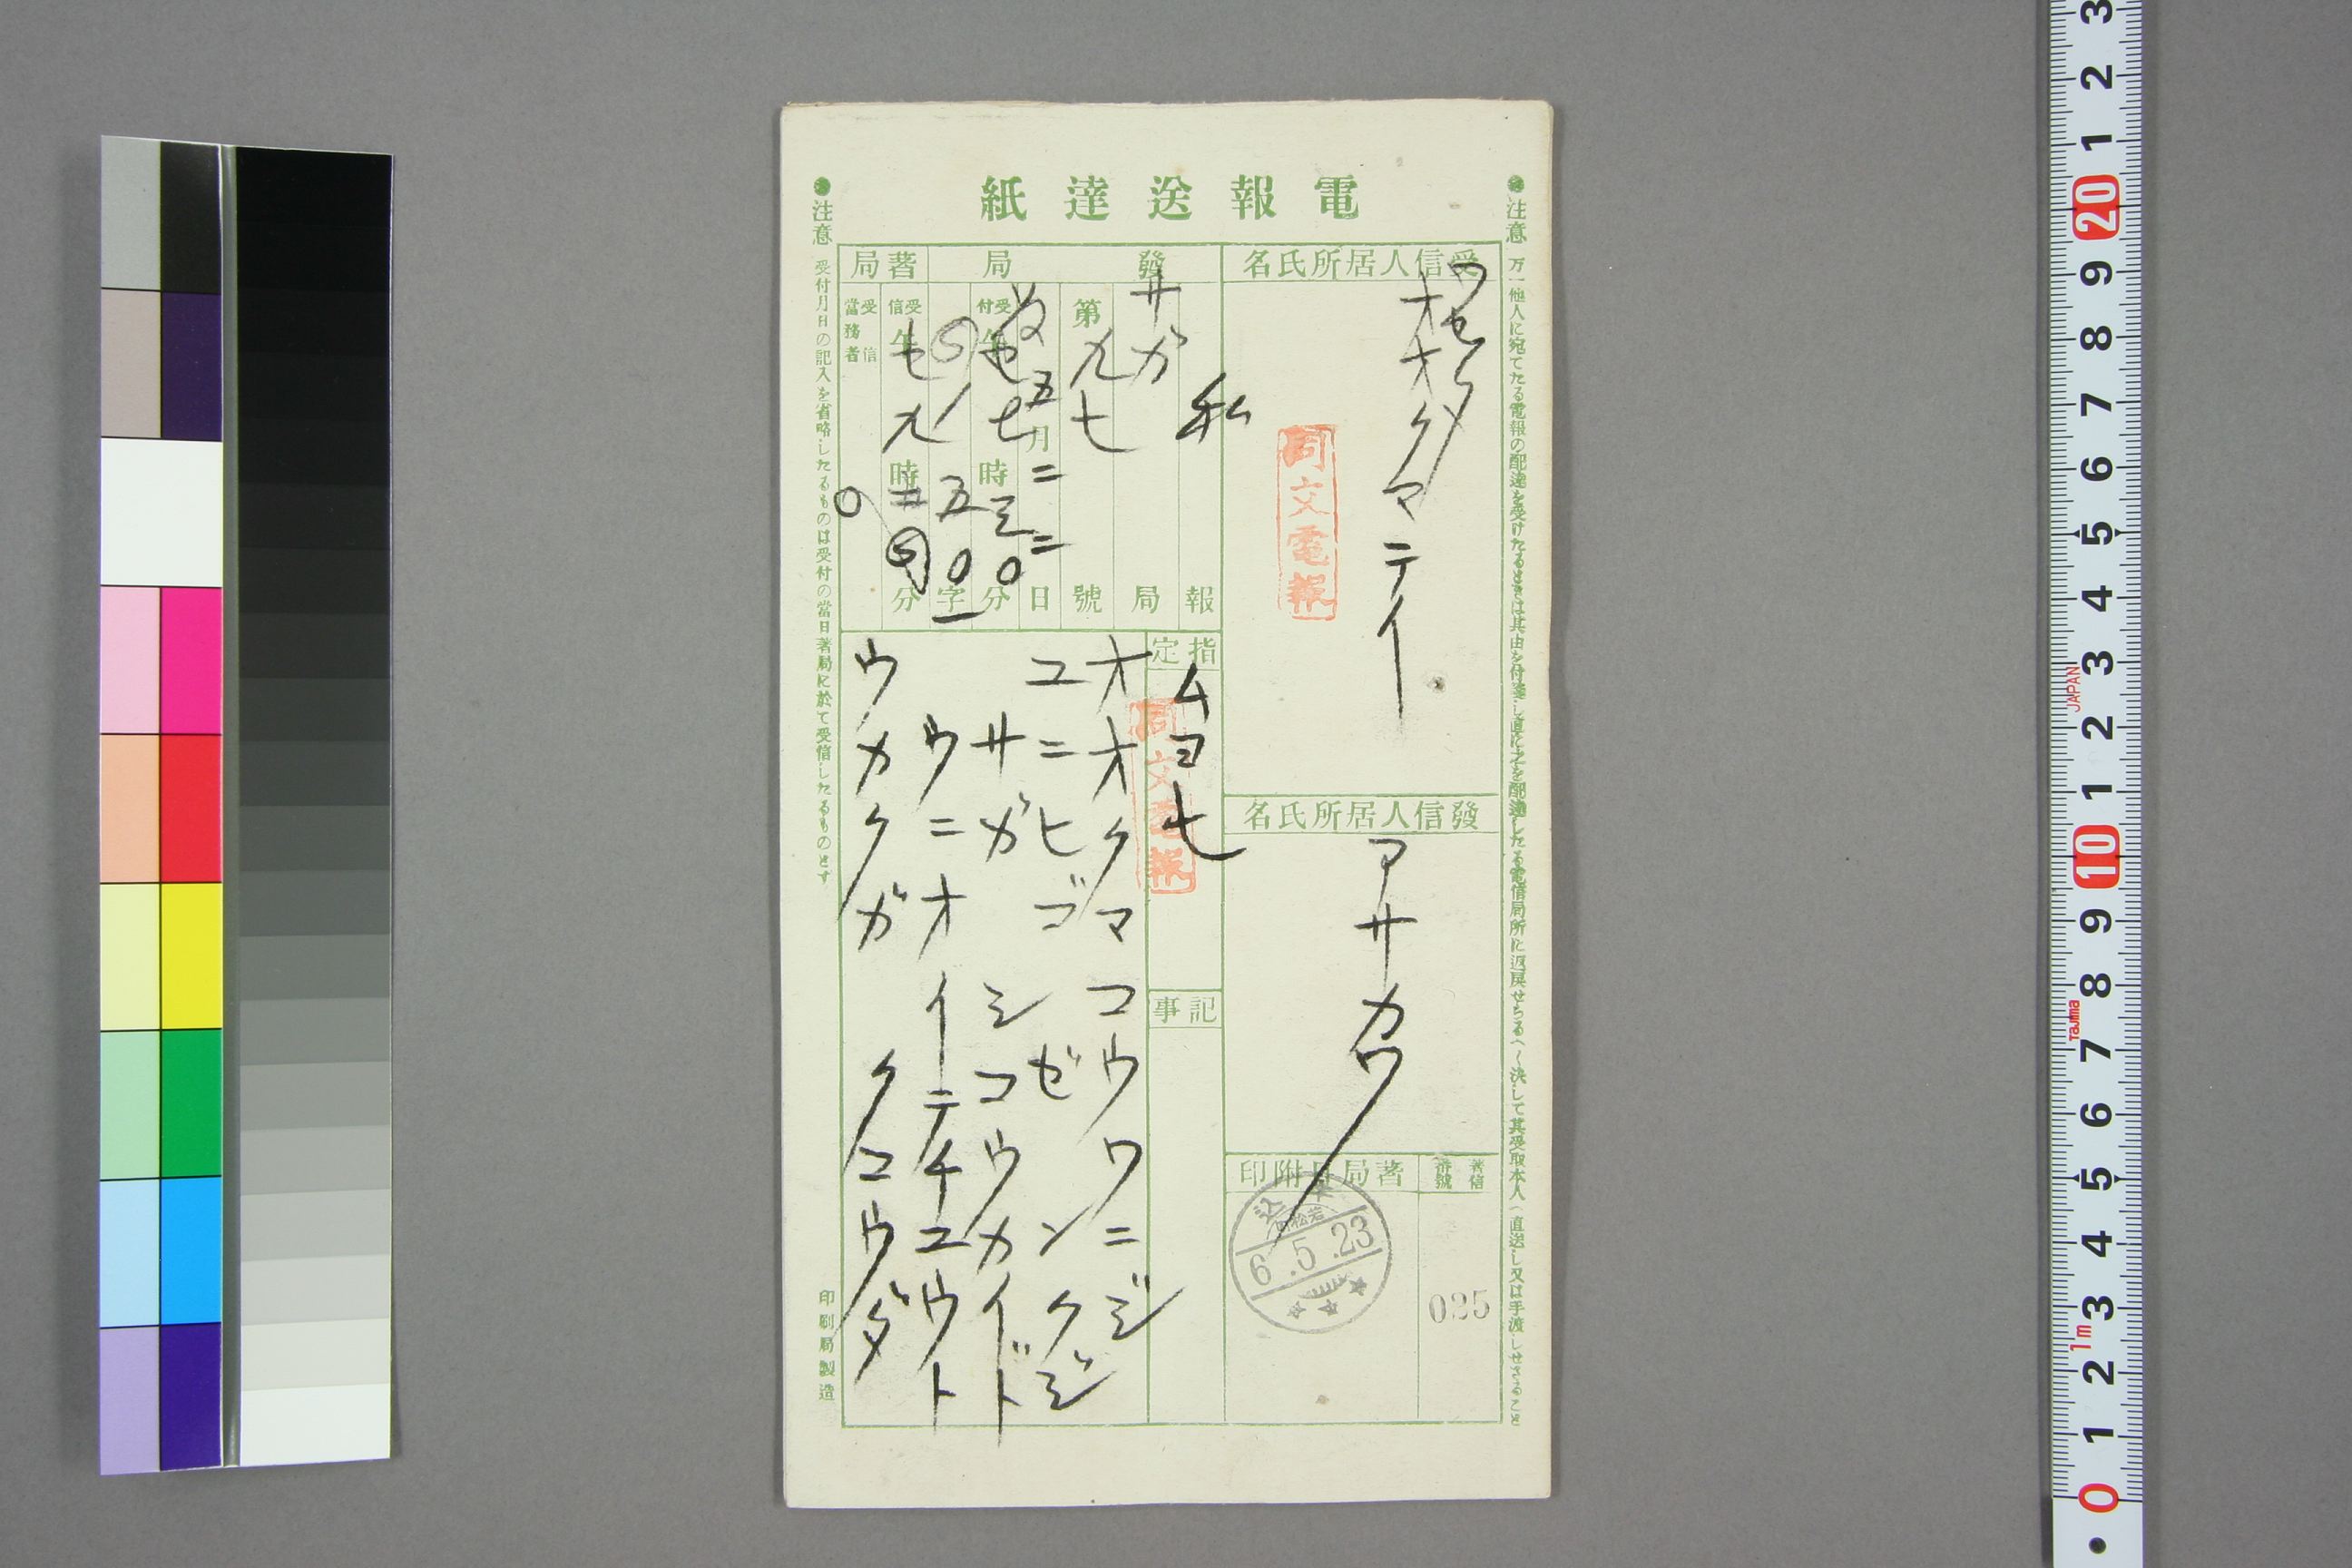 電報送達紙
●注意 万一他人に宛てたる電報の配達を受けたるときは其由を付箋し直に之を配達したる電信局所に返戻せらるへし決して其受取本人へ直送し又は手渡しせさること
受信人居所氏名
ワセダ
オオクマテイ
同文電報
發信人居所氏名
アサカワ
著信番號
025
著局日附印
牛込
若松町
6.5.23
發局
著局
私報
サガ局
第九七號
五月二二日
受付午
七時三〇分
五〇字
受信午
九時
分
受信當務者
指定
ムヨセ
同文電報
記事
オオクマ コウワニジ
ユニヒゴ ゼンクジ
サガ シコウカイドト
ウニオ イテチユウト
ウカクガ クコウダ
●注意 受付月日の記入を省略したるものは受付の當日著局に於て受信したるものとす
印刷局製造
3
2
1
20
9
8
7
6
5
4
3
2
1
10
9
8
7
6
5
4
3
2
1
0
JAPAN
Tajima
1m